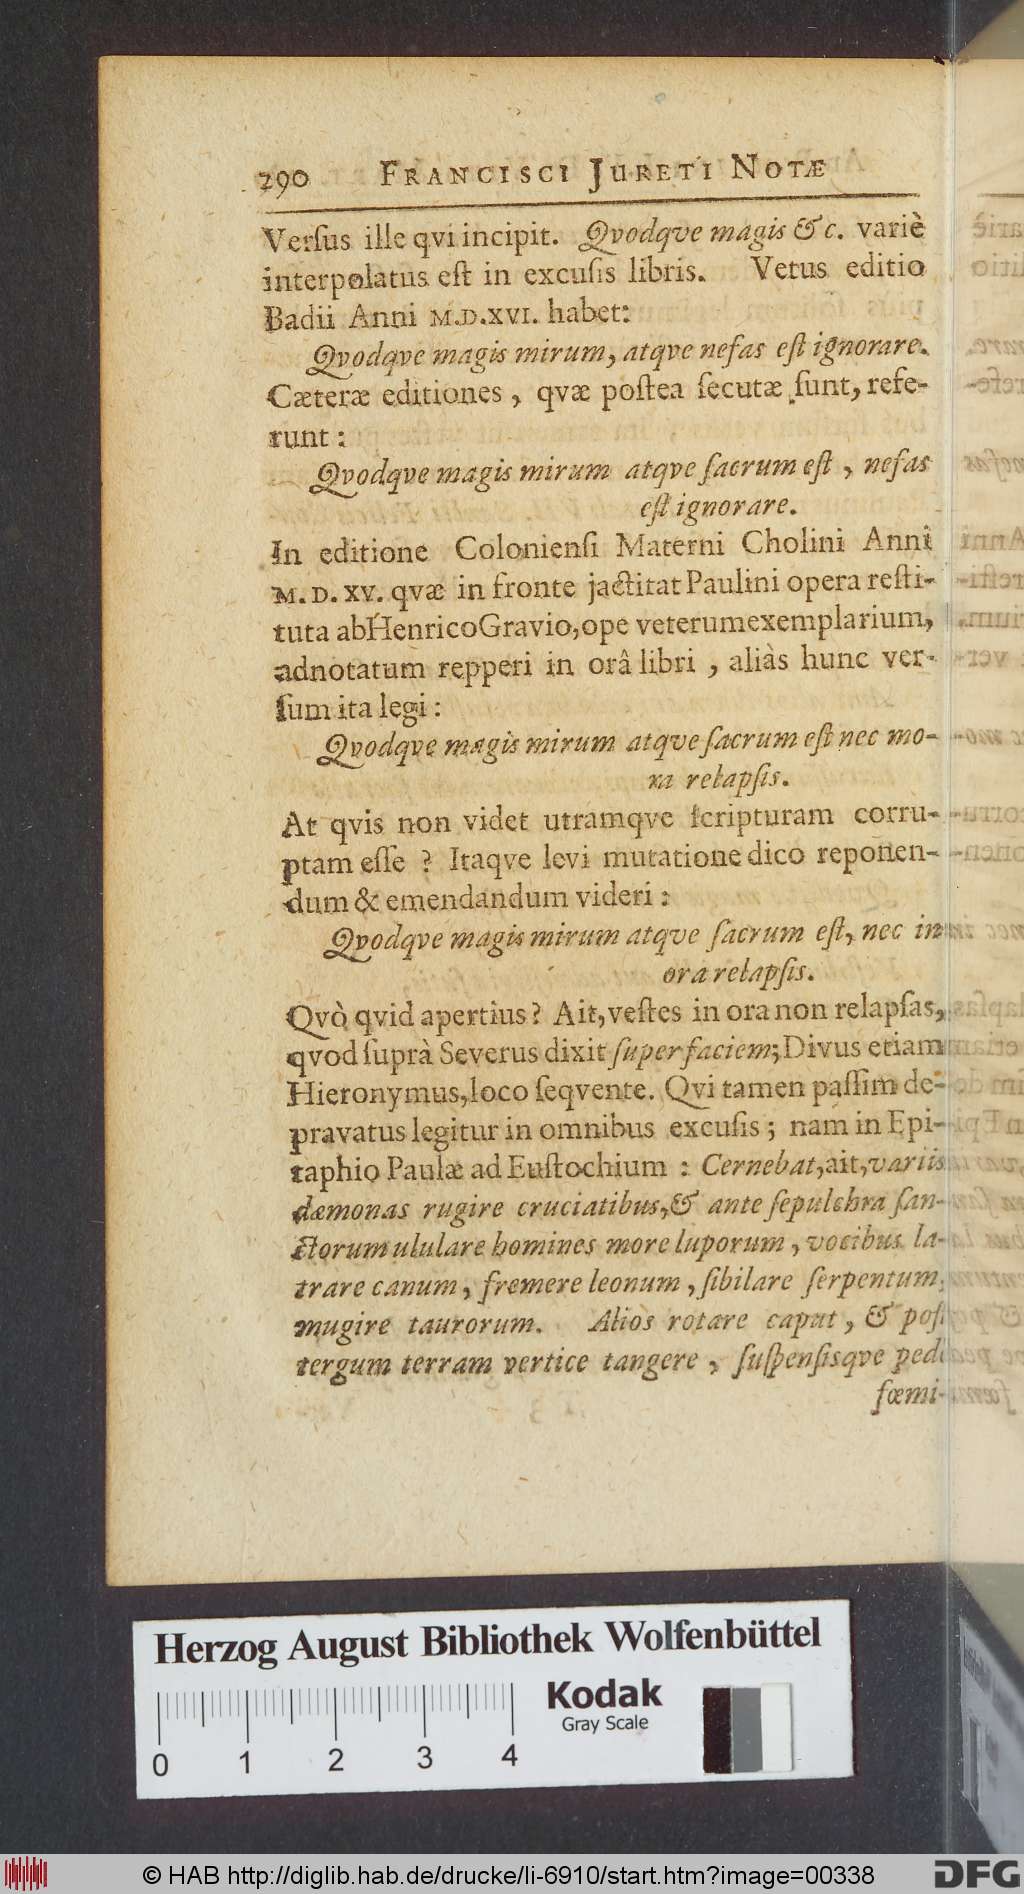 290 FRANCISCI JURETI NOTÆ
Verſus ille qvi incipit. Qvodqve magis & c. variè
interpolatus eſt in excuſis libris. Vetus editio
Badii Anni M.D.XVI. habet:
Qvodqve magis mirum, atqve nefas eſt ignorare.
Cæteræ editiones, qvæ poſtea ſecutæ ſunt, refe-
runt:
Qvodqve magis mirum atqve ſacrum eſt, nefas
eſt ignorare.
In editione Colonienſi Materni Cholini Anni
M.D.XV. qvæ in fronte jactitat Paulini opera reſti-
tuta ab Henrico Gravio, ope veterum exemplarium,
adnotatum repperi in orâ libri, aliàs hunc ver-
ſum ita legi:
Qvodqve magis mirum atqve ſacrum eſt nec mo-
ra relapſis.
At qvis non videt utramqve ſcripturam corru-
ptam eſſe? Itaqve levi mutatione dico reponen-
dum & emendandum videri:
Qvodqve magis mirum atqve ſacrum eſt, nec in
ora relapſis.
Qvò qvid apertius? Ait, veſtes in ora non relapſas,
qvod ſuprà Severus dixit ſuper faciem; Divus etiam
Hieronymus, loco ſeqvente. Qvi tamen paſſim de-
pravatus legitur in omnibus excuſis; nam in Epi-
taphio Paulæ ad Euſtochium: Cernebat, ait, variis
dæmonas rugire cruciatibus, & ante ſepulchra ſan-
ctorum ululare homines more luporum, vocibus la-
trare canum, fremere leonum, ſibilare ſerpentum,
mugire taurorum. Alios rotare caput, & poſt
tergum terram vertice tangere, ſuſpenſisqve pede
fœmi-
Herzog August Bibliothek Wolfenbüttel
Kodak
Gray Scale
0 1 2 3 4
© HAB http://diglib.hab.de/drucke/li-6910/start.htm?image=00338
DFG